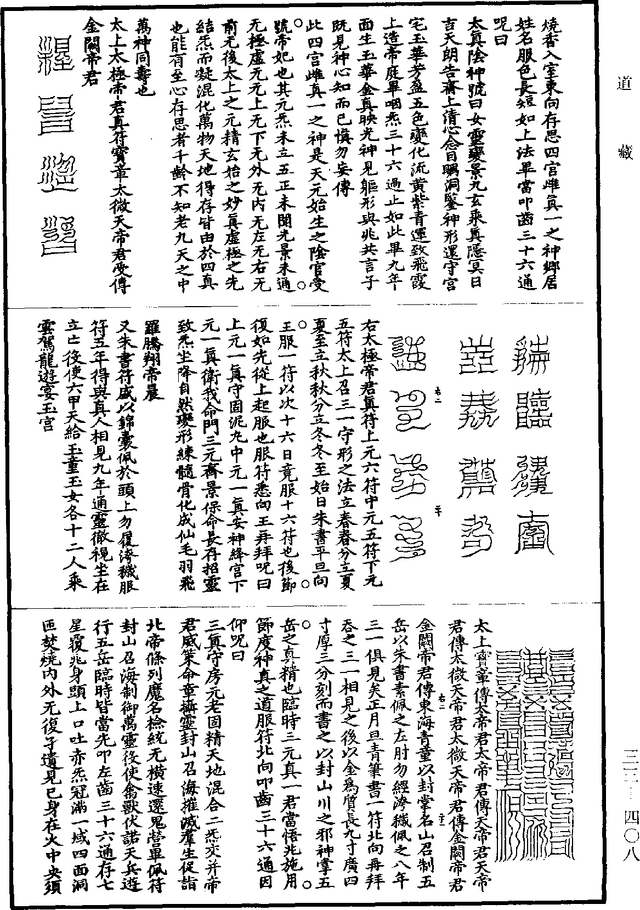 道藏
燒香入室東向存思四宫雌真一之神鄉居
姓名服色長短如上法畢當叩齒三十六通
呪曰
太真陰神號曰女靈變景九玄乘真隱冥日
吉天朗告齋上清心念目矚洞鑒神形還守宫
宅玉華芳盈五色變化流黄紫青運致飛霞
上造帝庭畢咽炁三十六過止如此畢九年
面生玉華金真映光神見軀形與兆共言子
既見神心知而已慎勿妄傳
此四宫雌真一之神是天元始生之陰官受
號帝妃也其元炁未立五正未開光景未通
无極虚无无上无下无外无内无左右无
前无後太上之元精玄始之妙真虚極之先
結炁而凝混化萬物天地得存皆由於四真
也能有至心存思者千齡不知老九天之中
萬神同壽也
太上太極帝君真符寳章太微天帝君受傳
金闕帝君
右太極帝君真符上元六符中元五符下元
五符太上召三一守形之法立春春分立夏
夏至立秋秋分立冬冬至始日朱書平旦向
王服一符以次十六日竟服十六符也後節
復如先從上起服也服符悉向王再拜呪曰
上元一真守固泥丸中元一真安神絳宫下
元一真衛我命門三元齋景保命長存招靈
致炁坐降自然變形練髓骨化成仙毛羽飛
羅騰翔帝晨
又朱書符盛以錦囊佩於頭上勿履洿穢服
符五年得與真人相見九年通靈徹視坐在
立亡後使六甲天給玉童玉女各十二人乘
雲駕龍遊宴玉宫
太上寳章傳太帝君太帝君傳天帝君天帝
君傳太微天帝君太微天帝君傳金闕帝君
金闕帝君傳東海青童以封掌名山召制五
岳以朱書素佩之左肘勿經洿穢佩之八年
三一俱見矣正月旦青筆書一符北向再拜
吞之三一相見之後以金爲質長九寸廣四
寸厚三分刻而書之以封山川之邪神掌五
岳之真精也臨時三元真一君當悟兆施用
節度神真之道服符北向叩齒三十六通因
仰呪曰
三真守房元老固精天地混合二炁交并帝
君威策命章攝靈封山召海摧滅羣生促詣
北帝條列魔名檢統无横速還鬼營畢佩符
封山召海制御萬靈役使禽獸伏諾天兵遊
行五岳臨時皆當先叩左齒三十六通存七
星覆兆身頭上口吐赤炁冠滿一域四面洞
匝焚燒内外无復孑遺見已身在火中央須
三三—四〇八